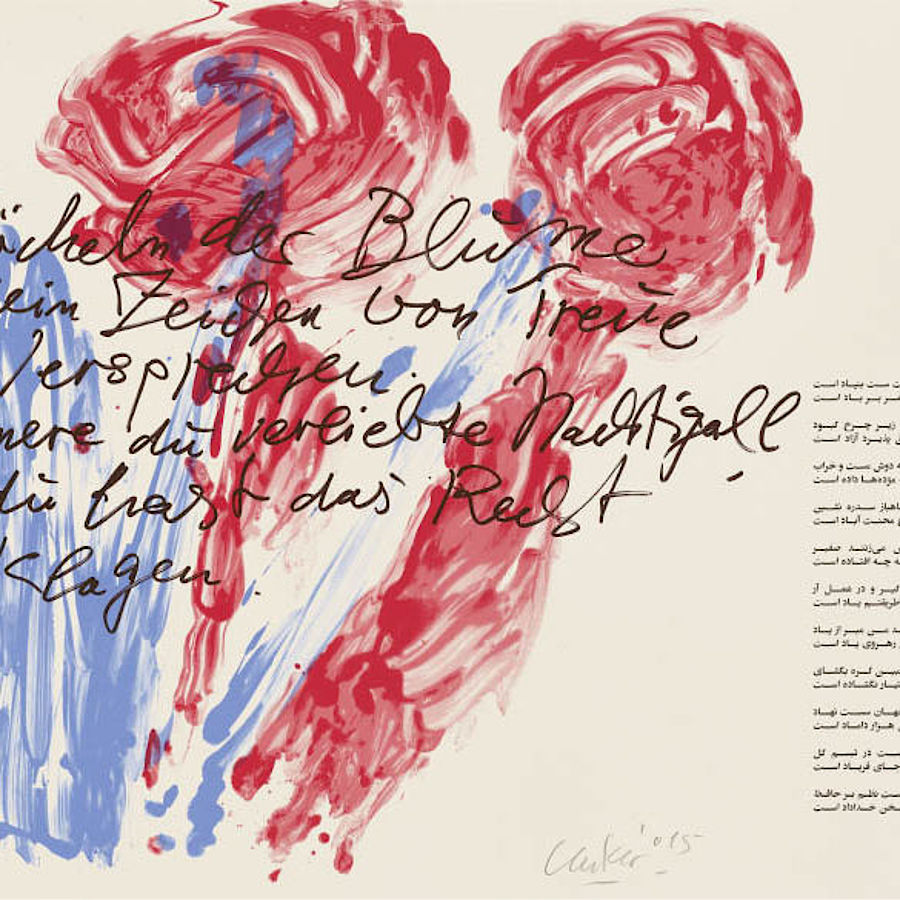 ächeln der Blume
ein Zeichen von Treue
Versprechen.
mere du verliebte Nachtigall
du hast das Recht
Klagen.
ت سست بنیاد است
عمر بر باد است
زیر چرخ کبود
پذیرد آزاد است
دوش مست و خراب
مژده‌ها داده است
شاهباز سدره نشین
محنت آباد است
می‌زنند صفیر
چه افتاده است
گیر و در عمل آر
طریقتم یاد است
من مبر از یاد
رهروی یاد است
جبین گره بگشای
اختیار نگشاده است
جهان سست نهاد
هزار داماد است
نیست در تبسم گل
جای فریاد است
سست نظم بر حافظ
سخن خداداد است
'015